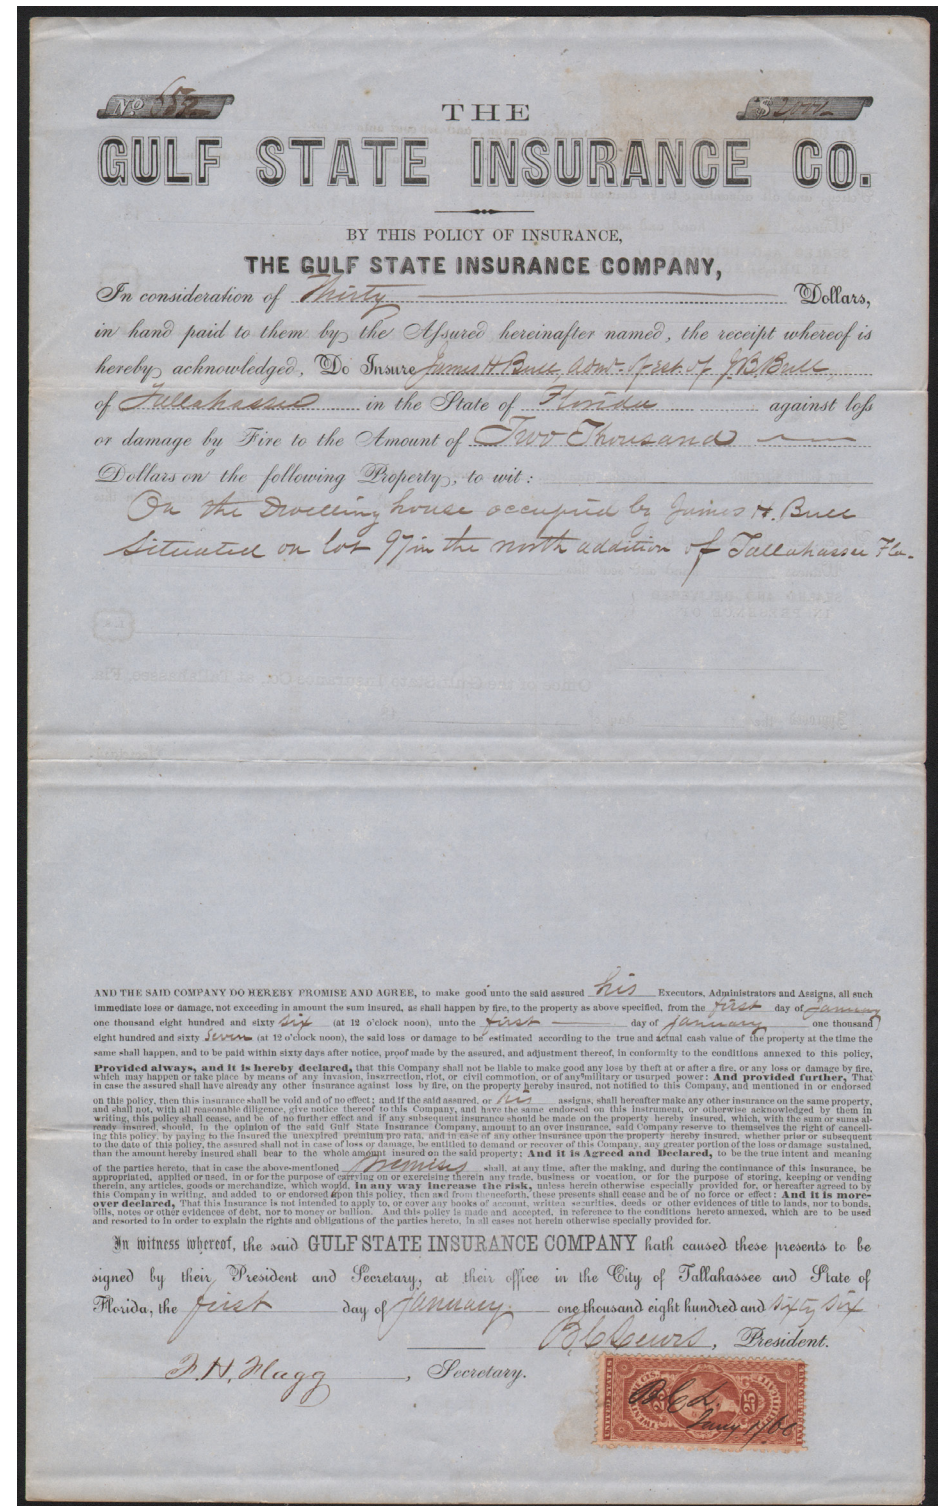 No 552
THE
$2000
GULF STATE INSURANCE CO.
BY THIS POLICY OF INSURANCE,
THE GULF STATE INSURANCE COMPANY,
In consideration of Thirty Dollars,
in hand paid to them by the Assured hereinafter named, the receipt whereof is
hereby acknowledged, Do Insure James H Bull Admr. of est. of J.B. Bull
of Tallahassee in the State of Florida against loss
or damage by Fire to the Amount of Two Thousand
Dollars on the following Property, to wit:
On the Dwelling house occupied by James H. Bull
Situated on lot 97 in the north addition of Tallahassee Fla.
AND THE SAID COMPANY DO HEREBY PROMISE AND AGREE, to make good unto the said assured his Executors, Administrators and Assigns, all such
immediate loss or damage, not exceeding in amount the sum insured, as shall happen by fire, to the property as above specified, from the first day of January
one thousand eight hundred and sixty six (at 12 o'clock noon), unto the first day of January one thousand
eight hundred and sixty Seven (at 12 o'clock noon), the said loss or damage to be estimated according to the true and actual cash value of the property at the time
same shall happen, and to be paid within sixty days after notice, proof made by the assured, and adjustment thereof, in conformity to the conditions annexed to this policy,
Provided always, and it is hereby declared, that this Company shall not be liable to make good any loss by theft at or after a fire, or any loss or damage by fire,
which may happen or take place by means of any invasion, insurrection, riot, or civil commotion, or of any military or usurped power: And provided further, That
in case the assured shall have already any other insurance against loss by fire, on the property hereby insured, not notified to this Company, and mentioned in or endorsed
on this policy, then this insurance shall be void and of no effect; and if the said assured, or his assigns, shall hereafter make any other insurance on the same property,
and shall not, with all reasonable diligence, give notice thereof to this Company, and have the same endorsed on this instrument, or otherwise acknowledged by them in
writing, this policy shall cease, and be of no further effect and if any subsequent insurance should be made on the property hereby insured, which, with the sum or sums al-
ready insured, should, in the opinion of the said Gulf State Insurance Company, amount to an over insurance, said Company reserve to themselves the right of cancell-
ing this policy, by paying to the insured the unexpired premium pro rata, and in case of any other insurance upon the property hereby insured, whether prior or subsequent
to the date of this policy, the assured shall not in case of loss or damage, be entitled to demand or recover of this Company, any greater portion of the loss or damage sustained,
than the amount hereby insured shall bear to the whole amount insured on the said property; And it is Agreed and Declared, to be the true intent and meaning
of the parties hereto, that in case the above-mentioned Premises shall, at any time, after the making, and during the continuance of this insurance, be
appropriated, applied or used, in or for the purpose of carrying on or exercising therein any trade, business or vocation, or for the purpose of storing, keeping or vending
therein, any articles, goods or merchandize, which would, In any way increase the risk, unless herein otherwise especially provided for, or hereafter agreed to by
this Company in writing, and added to or endorsed upon this policy, then and from thenceforth, these presents shall cease and be of no force or effect: And it is more-
over declared, That this Insurance is not intended to apply to, or cover any books of account, written securities, deeds or other evidences of title to lands, nor to bonds,
bills, notes or other evidences of debt, nor to money or bullion. And this policy is made and accepted, in reference to the conditions hereto annexed, which are to be used
and resorted to in order to explain the rights and obligations of the parties hereto, in all cases not herein otherwise specially provided for.
In witness whereof, the said GULF STATE INSURANCE COMPANY hath caused these presents to be
signed by their President and Secretary, at their office in the City of Tallahassee and State of
Florida, the first day of January one thousand eight hundred and sixty six
B.C. Lewis, President.
F. H. Flagg, Secretary.
25
B.C.L.
Jany 1/66